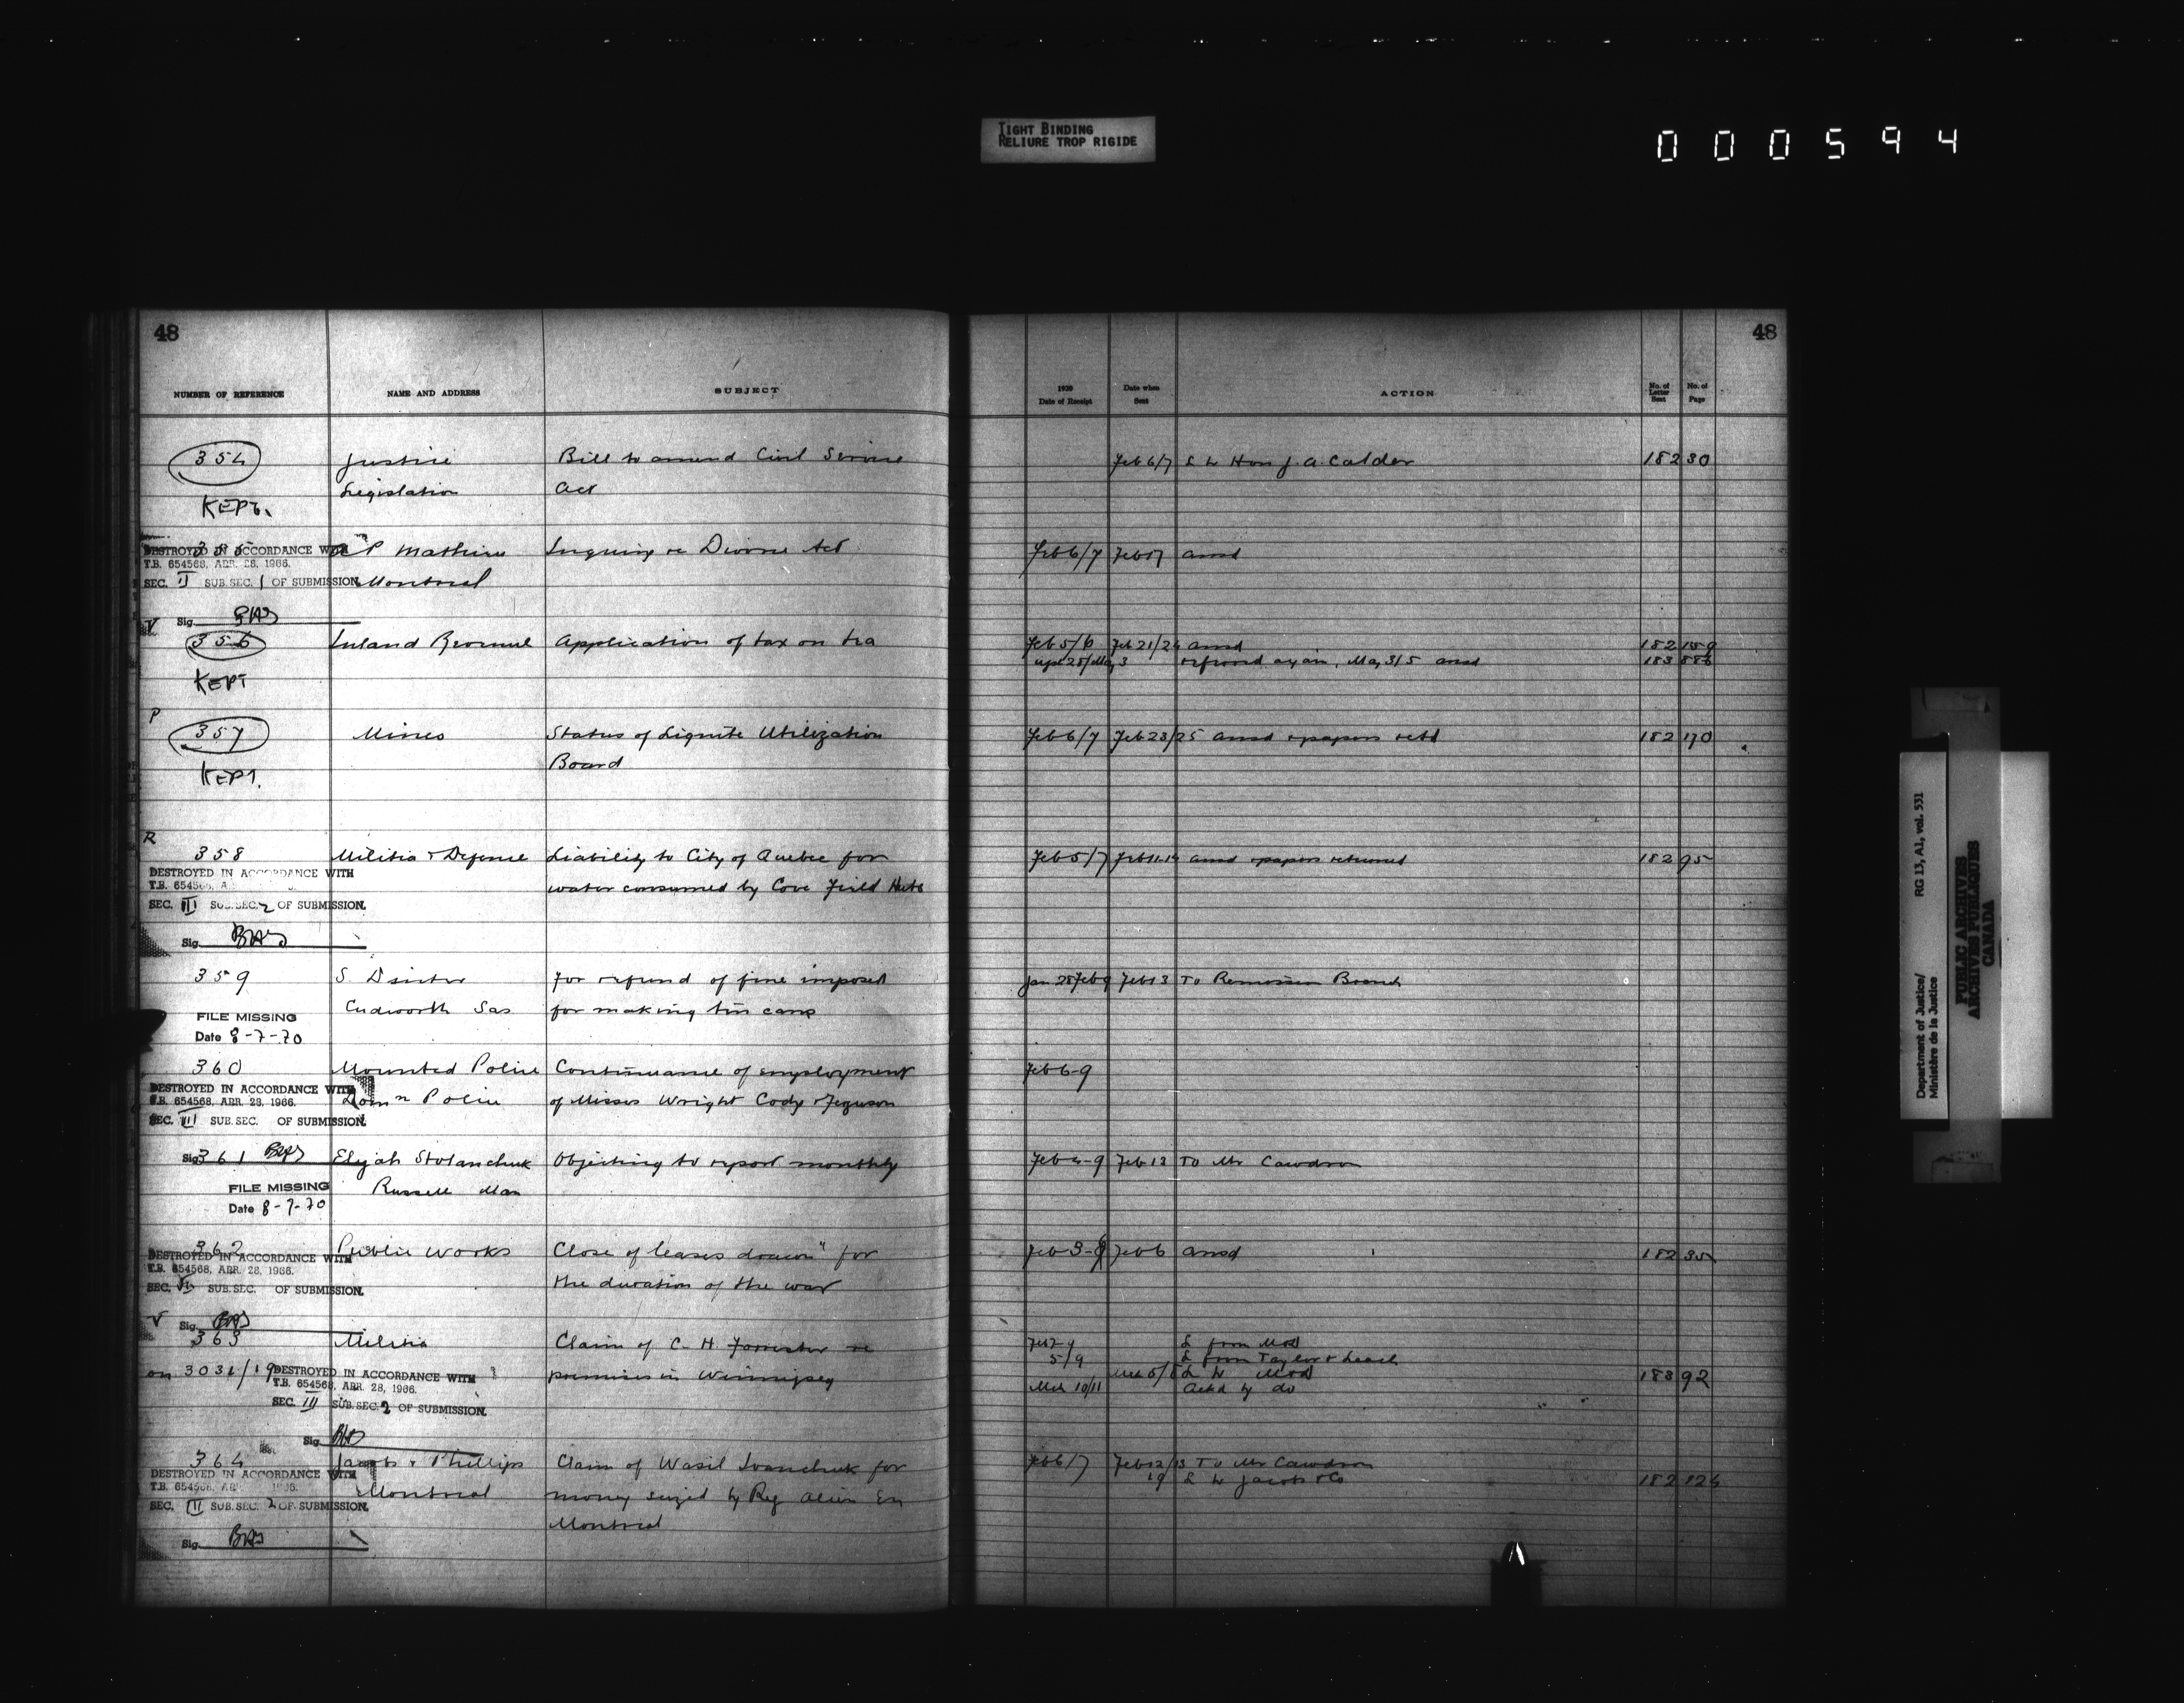 TIGHT BINDING
RELIURE TROP RIGIDE
000594
48
NUMBER OF REFERENCE NAME AND ADDRESS SUBJECT
354 Justice Bill to amend Civil Service
Legislation Act
KEPT.
355 P Mathieu Inquiry re Divorce Act
DESTROYED IN ACCORDANCE WITH
T.B. 654568, APR. 28, 1966.
SEC. II SUB.SEC. 1 OF SUBMISSION. Montreal
Sig.
356 Inland Revenue Application of tax on tea
KEPT
P
357 Mines Status of Lignite Utilization
Board
KEPT.
R
358 Militia & Defence Liability to City of Quebec for
DESTROYED IN ACCORDANCE WITH
T.B. 654568, A
water consumed by Cove Field Huts
SEC. III SUB.SEC. 2 OF SUBMISSION.
Sig.
359 S. For refund of fine imposed
Cudworth Sas for making tin cans
FILE MISSING
Date 8-7-70
360 Mounted Police Continuance of employment
DESTROYED IN ACCORDANCE WITH
T.B. 654568, APR. 28, 1966. Domn Police of Misses Wright Cody & Ferguson
SEC. III SUB.SEC. OF SUBMISSION.
Sig.
361 Elijah Stolanchuk Objecting to report monthly
FILE MISSING Russell Man
Date 8-7-70
362 Public Works Close of leases drawn "for
DESTROYED IN ACCORDANCE WITH
T.B. 654568, APR. 28, 1966.
the duration of the war
SEC. SUB.SEC. OF SUBMISSION.
Sig.
363 Militia Claim of C. H Forrester re
on 3031/19 premises in Winnipeg
DESTROYED IN ACCORDANCE WITH
T.B. 654568, APR. 28, 1966.
SEC. III SUB.SEC. 2 OF SUBMISSION.
Sig.
364 Jacobs & Phillips Claim of Wasil Ivanchuk for
DESTROYED IN ACCORDANCE WITH
T.B. 654568, Montreal money seized by Reg Alien En
SEC. III SUB.SEC. 2 OF SUBMISSION.
Montreal
Sig.
48
1920 Date of Receipt Date when Sent ACTION No. of Letter Sent No. of Page
Feb 6/7 L to Hon J. A. Calder 182 30
Feb 6/7 Feb 17 ansd
Feb 5/6 Feb 21/24 ansd 182 159
Apl 28/May 3 referred again, May 3/5 ansd 183
Feb 6/7 Feb 23/25 ansd & papers retd 182 170
Feb 5/7 Feb 11-14 ansd & papers returned 182 95
Jan 28 Feb 9 Feb 13 To Remission Branch
Feb 6-9
Feb 4-9 Feb 13 To Mr Cawdron
Feb 3-9 Feb 6 ansd 182 35
Feb 7-9 L from M&D
5/9 L from Taylor & Leach
Mch 5/8 L to M&D 183 92
Mch 10/11 Ackd by do
Feb 6/7 Feb 12/13 To Mr Cawdron
19 L to Jacobs & Co 182 124
Department of Justice/ RG 13, A1, vol. 531
Ministère de la Justice
PUBLIC ARCHIVES
ARCHIVES PUBLIQUES
CANADA